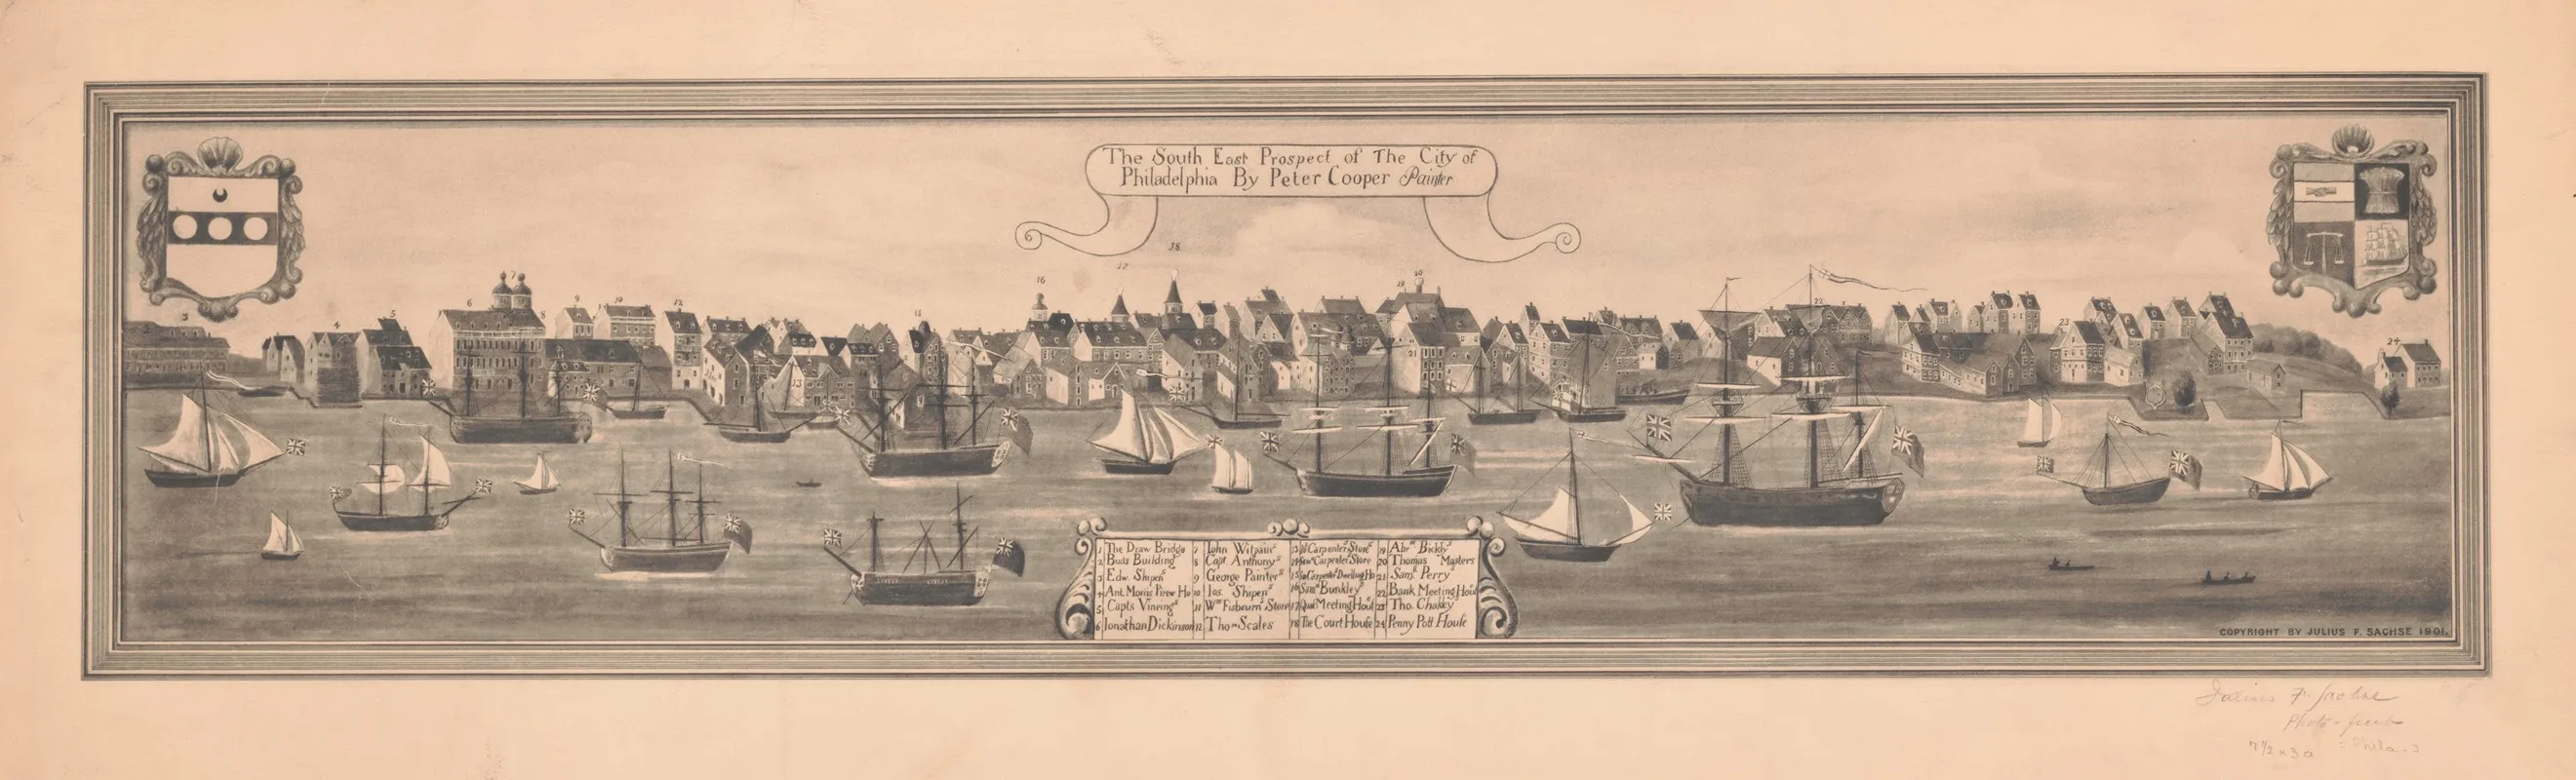 The South East Prospect of The City of
Philadelphia By Peter Cooper Painter
38
17
16
7
20
19
6
8
9
10
12
3
2
4
5
15
22
23
24
13
21
1 The Draw Bridge
2 Buds Building
3 Edw. Shipens
4 Ant. Morris Brew Ho
5 Capts Vineings
6 Jonathan Dickinson
7 John Witpains
8 Capt. Anthonys
9 George Painters
10 Jos. Shipens
11 Wm Fishourns Store
12 Thos Scales
Carpenters Store
14 Saml Carpenters Store
15 Carpenters Dwelling Ho
16 Saml Bunkleys
17 Quak Meeting House
18 The Court House
19 Abrm Bickly
20 Thomas Masters
21 Saml Perry
22 Bank Meeting House
23 Tho. Chakley
24 Penny Pott House
COPYRIGHT BY JULIUS F. SACHSE 1901.
Julius F. Sachse
Photo-fecit
7 1/2 x 30 [Phila.]